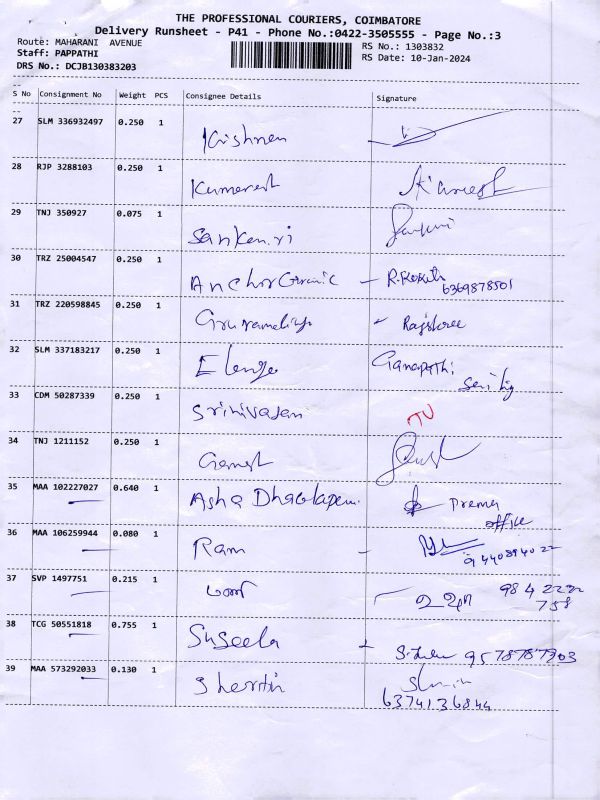 THE PROFESSIONAL COURIERS, COIMBATORE
Delivery Runsheet - P41 - Phone No.:0422-3505555 - Page No.:3
Route: MAHARANI AVENUE
RS No.: 1303832
Staff: PAPPATHI
RS Date: 10-Jan-2024
DRS No.: DCJB130383203
S No Consignment No Weight PCS Consignee Details Signature
27 SLM 336932497 0.250 1 Krishnan
28 RJP 3288103 0.250 1 Kumaresh
29 TNJ 350927 0.075 1 Sankari
30 TRZ 25004547 0.250 1 Anchor Ceramic - R. 6369878501
31 TRZ 220598845 0.250 1 - Rajshree
32 SLM 337183217 0.250 1 Ganapathi
33 CDM 50287339 0.250 1 Srinivasan TV
34 TNJ 1211152 0.250 1 Ganesh
35 MAA 102227027 0.640 1 Asha Prema
office
36 MAA 106259944 0.080 1 Ram -
37 SVP 1497751 0.215 1 984 2222
758
38 TCG 50551818 0.755 1 Suseela - 9578787903
39 MAA 573292033 0.130 1
6374136844